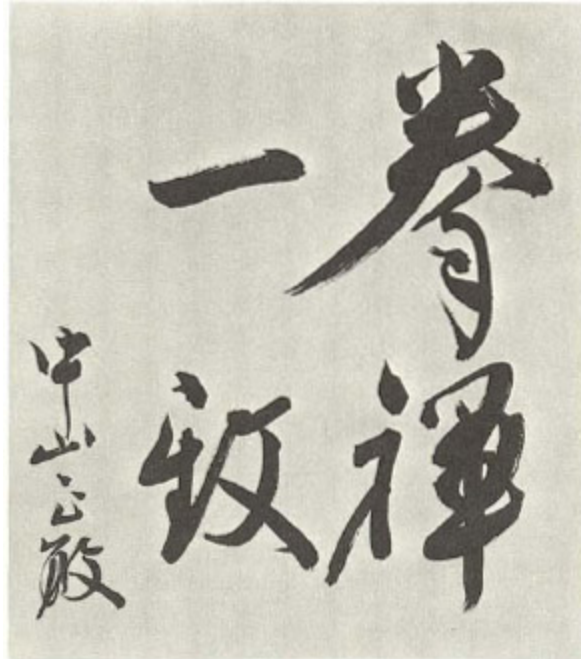 拳禅
一致
中山正敏